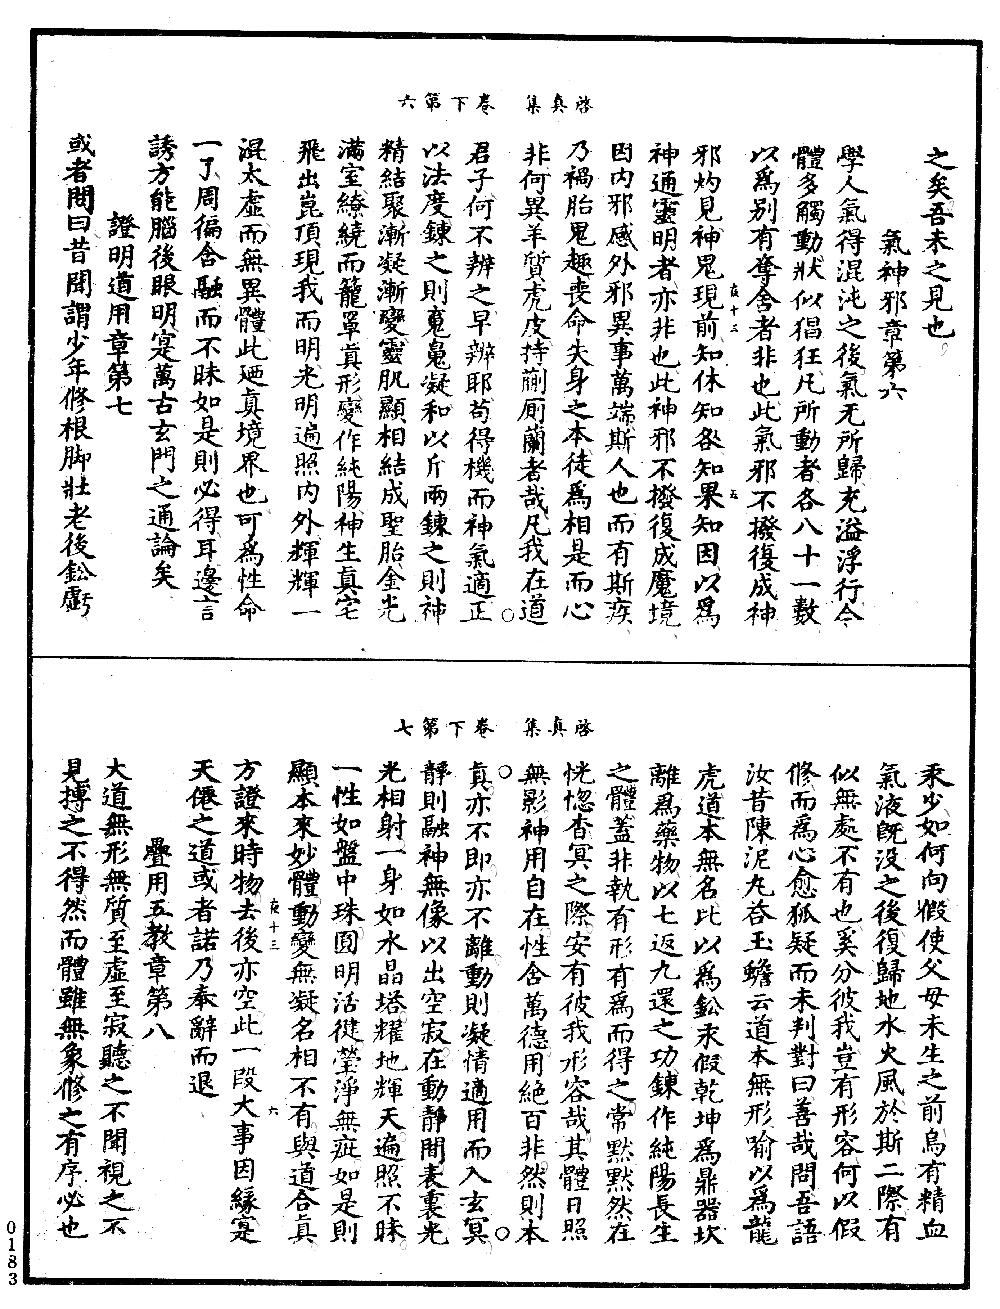 啓真集　卷下第六
之矣吾未之見也
氣神邪章第六
學人氣得混沌之後氣无所歸充溢浮行令
體多觸動狀似猖狂凡所動者各八十一數
以爲別有奪舍者非也此氣邪不撥復成神
邪灼見神鬼現前知休知咎知果知因以爲
神通靈明者亦非也此神邪不撥復成魔境
因内邪感外邪異事萬端斯人也而有斯疾
乃禍胎鬼趣喪命失身之本徒爲相是而心
非何異羊質虎皮持蒯厠蘭者哉凡我在道
君子何不辨之早辨耶苟得機而神氣適正
以法度鍊之則䰟䰟凝和以斤兩鍊之則神
精結聚漸凝漸變靈肌顯相結成聖胎金光
滿室繚繞而籠罩真形變作純陽神生真宅
飛出崑頂現我而明光明遍照内外輝輝一
混太虛而無異體此廼真境界也可爲性命
一了周徧含融而不昧如是則必得耳邊言
誘方能腦後眼明寔萬古玄門之通論矣
證明道用章第七
或者問曰昔聞謂少年修根脚壯老後鉛虧
啓真集　卷下第七
汞少如何向假使父母未生之前烏有精血
氣液旣没之後復歸地水火風於斯二際有
似無處不有也奚分彼我豈有形容何以假
修而爲心愈狐疑而未判對曰善哉問吾語
汝昔陳泥丸荅玉蟾云道本無形喻以爲龍
虎道本無名比以爲鉛汞假乾坤爲鼎器坎
離爲藥物以七返九還之功鍊作純陽長生
之體蓋非執有形有爲而得之常默默然在
恍惚杳冥之際安有彼我形容哉其體日照
無影神用自在性含萬德用絶百非然則本
真亦不即亦不離動則凝情適用而入玄冥
靜則融神無像以出空寂在動靜間表裏光
光相射一身如水晶塔耀地輝天遍照不昧
一性如盤中珠圓明活徤瑩淨無疵如是則
顯本來妙體動變無凝名相不有與道合真
方證來時物去後亦空此一段大事因緣寔
天僊之道或者諾乃奉辭而退
疊用五教章第八
大道無形無質至虛至寂聽之不聞視之不
見摶之不得然而體雖無象修之有序必也
0183